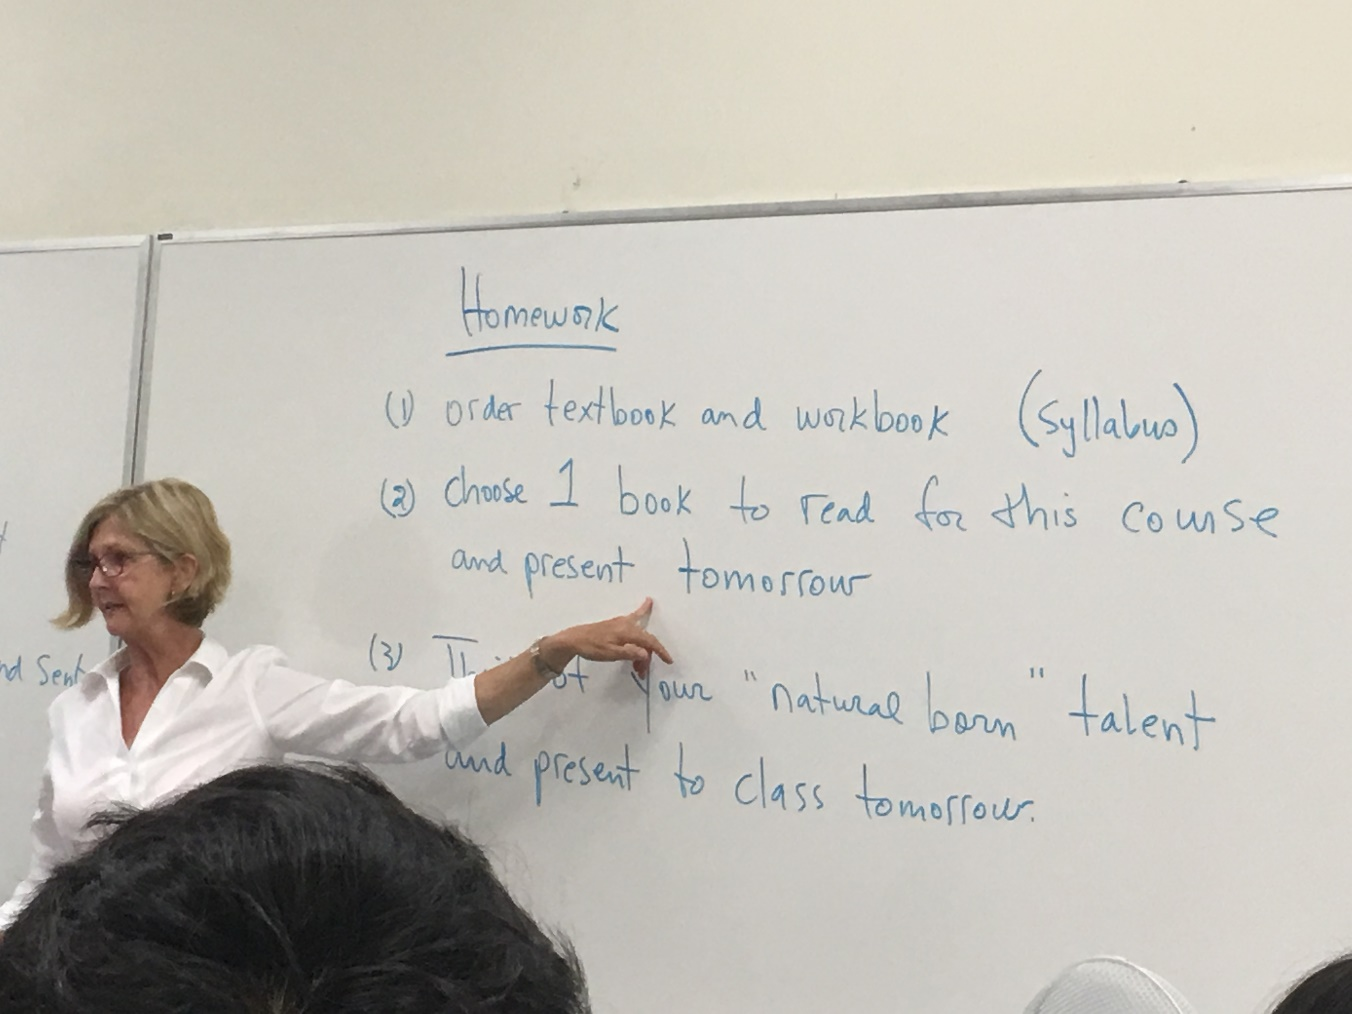 Homework
(1) order textbook and workbook (Syllabus)
(2) choose 1 book to read for this course
and present tomorrow
(3) your "natural born" talent
and present to class tomorrow.